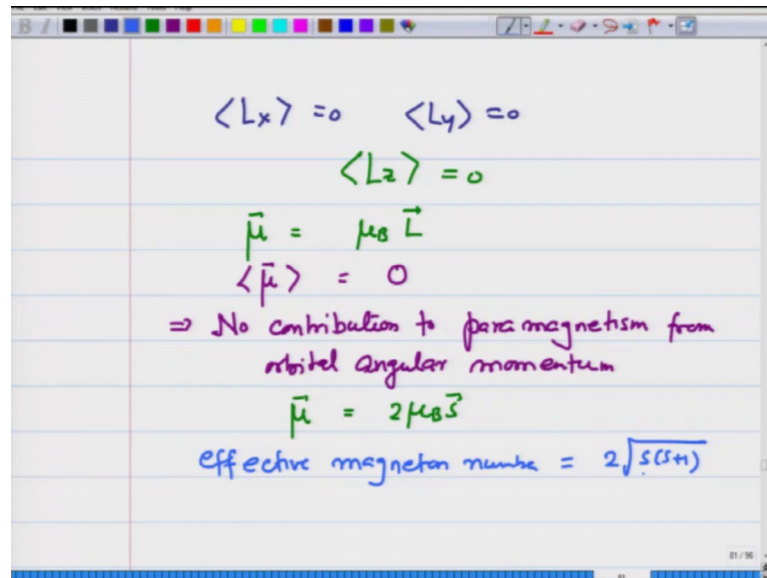 ⟨Lx⟩ =0 ⟨Ly⟩ =0
⟨Lz⟩ = 0
μ⃗ = μB L⃗
⟨μ⃗⟩ = 0
⇒ No contribution to paramagnetism from
orbital angular momentum
μ⃗ = 2μB s⃗
effective magneton numbe = 2√s(s+1)
81 / 96